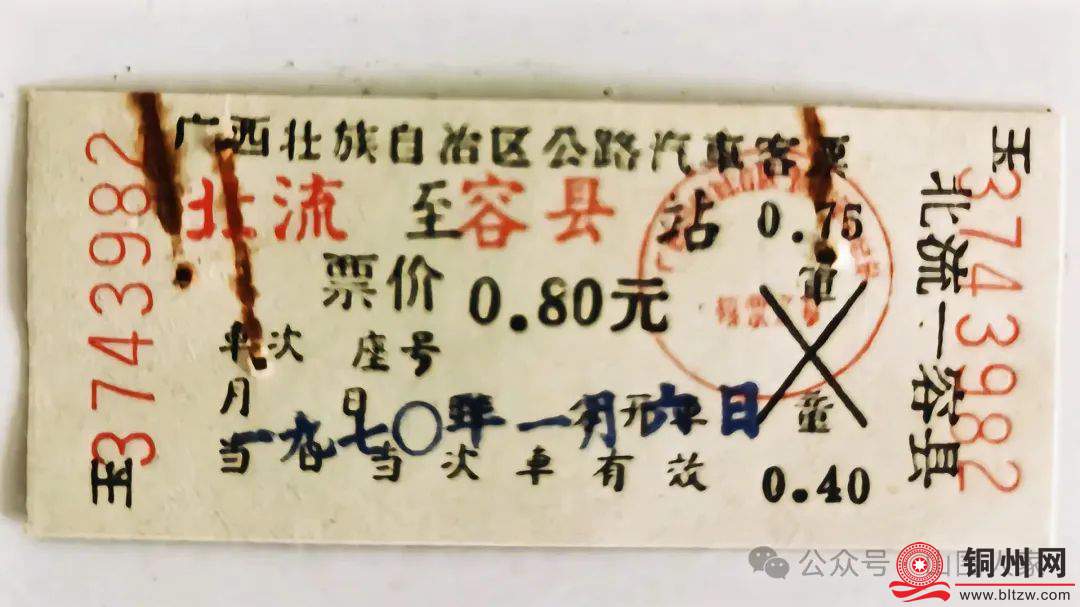 广西壮族自治区公路汽車客票
北流 至 容县 站 0.75
票价 0.80元
車次 座号
月 日 开車
一九七〇年一月六日
当日当次車有效
童
0.40
玉3743982
玉3743982
北流—容县
公众号
铜州网
www.bltzw.com